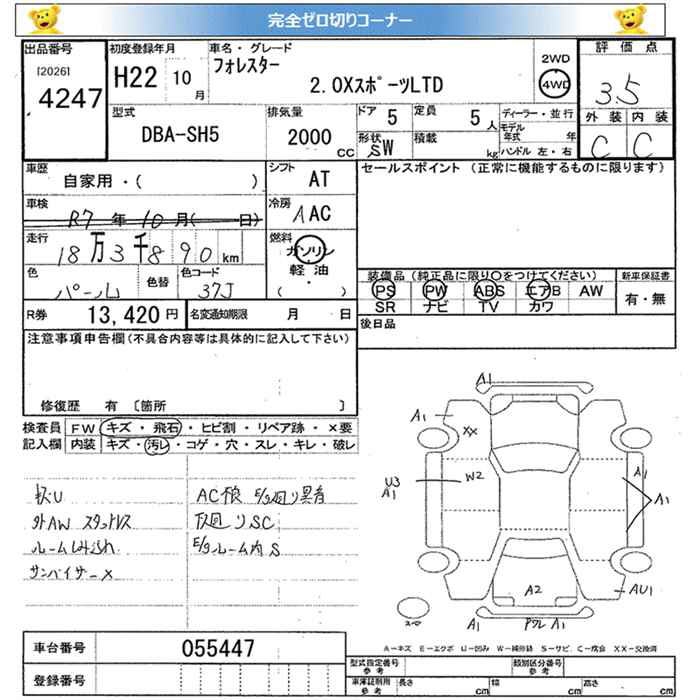 完全ゼロ切りコーナー
出品番号
[2026]
4247
初度登録年月
H22 10 月
車名・グレード
フォレスター
2.0XスポーツLTD
2WD
4WD
評価点
3.5
外装 内装
C C
型式
DBA-SH5
排気量
2000 CC
ドア 5
定員 5 人
形状 SW
積載 kg
ディーラー・並行
モデル年式 年
ハンドル 左・右
車歴
自家用・( )
シフト AT
セールスポイント (正常に機能するものに限ります)
車検
R7 年 10 月( 日)
冷房 AAC
走行
18万3千890 km
燃料
ガソリン
軽・油
( )
色
パール
色替
色コード
37J
装備品(純正品に限り○をつけてください)
新車保証書
PS PW ABS エアB AW
SR ナビ TV カワ
有・無
R券 13,420 円
名変通知期限 月 日
後日品
注意事項申告欄(不具合内容等は具体的に記入して下さい)
修復歴 有 〔箇所 〕
検査員記入欄
FW キズ・飛石・ヒビ割・リペア跡・×要
内装 キズ・汚レ・コゲ・穴・スレ・キレ・破レ
外AW スタッドレス
サンバイザー×
AC不良 E/g廻り異音
下廻りSC
E/gルーム内S
A1
A1
XX
U3
A1
W2
A1
A1
A2
AU1
A1
A1
A-キズ E-エクボ U-凹み W-補修跡 S-サビ C-腐食 XX-交換済
車台番号 055447
登録番号
型式指定番号 参考
類別区分番号 参考
車庫証明用 参考 長さ cm 幅 cm 高さ cm